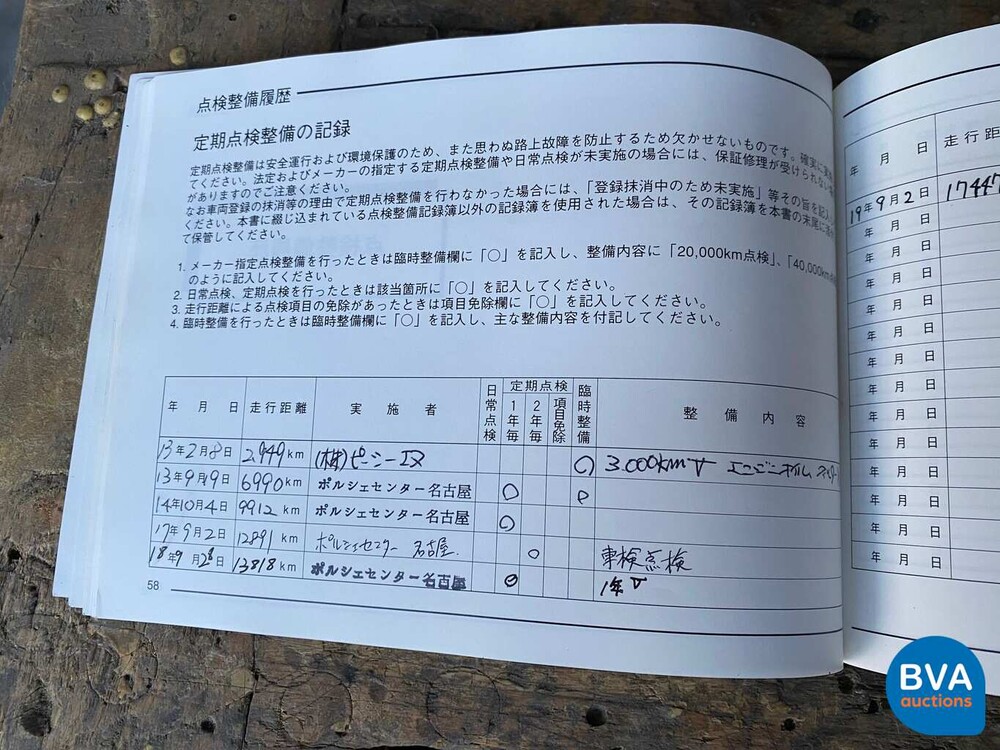 点検整備履歴
定期点検整備の記録
定期点検整備は安全運行および環境保護のため、また思わぬ路上故障を防止するため欠かせないものです。確実に実
てください。法定およびメーカーの指定する定期点検整備や日常点検が未実施の場合には、保証修理が受けられない
がありますのでご注意ください。
なお車両登録の抹消等の理由で定期点検整備を行わなかった場合には、「登録抹消中のため未実施」等その旨を記入
ください。本書に綴じ込まれている点検整備記録簿以外の記録簿を使用された場合は、その記録簿を本書の末尾に
て保管してください。
1. メーカー指定点検整備を行ったときは臨時整備欄に「○」を記入し、整備内容に「20,000km点検」、「40,000km点
のように記入してください。
2. 日常点検、定期点検を行ったときは該当箇所に「○」を記入してください。
3. 走行距離による点検項目の免除があったときは項目免除欄に「○」を記入してください。
4. 臨時整備を行ったときは臨時整備欄に「○」を記入し、主な整備内容を付記してください。
年 月 日 走行距離 実施者 日常点検 定期点検 1年毎 2年毎 項目免除 臨時整備 整備内容
13年2月8日 2,949km (株)ピーシーエヌ ○ 3,000km
13年9月19日 6990km ポルシェセンター名古屋 ○ ○
14年10月4日 9912km ポルシェセンター名古屋 ○
17年9月2日 12891km ポルシェセンター 名古屋. ○ 車検点検
18年9月28日 13818km ポルシェセンター名古屋 ○ 1年
58
年 月 日 走行距
19年9月2日 17447
年 月 日
年 月 日
年 月 日
年 月 日
年 月 日
年 月 日
年 月 日
年 月 日
年 月 日
年 月 日
年 月 日
年 月 日
年 月 日
BVA
auctions